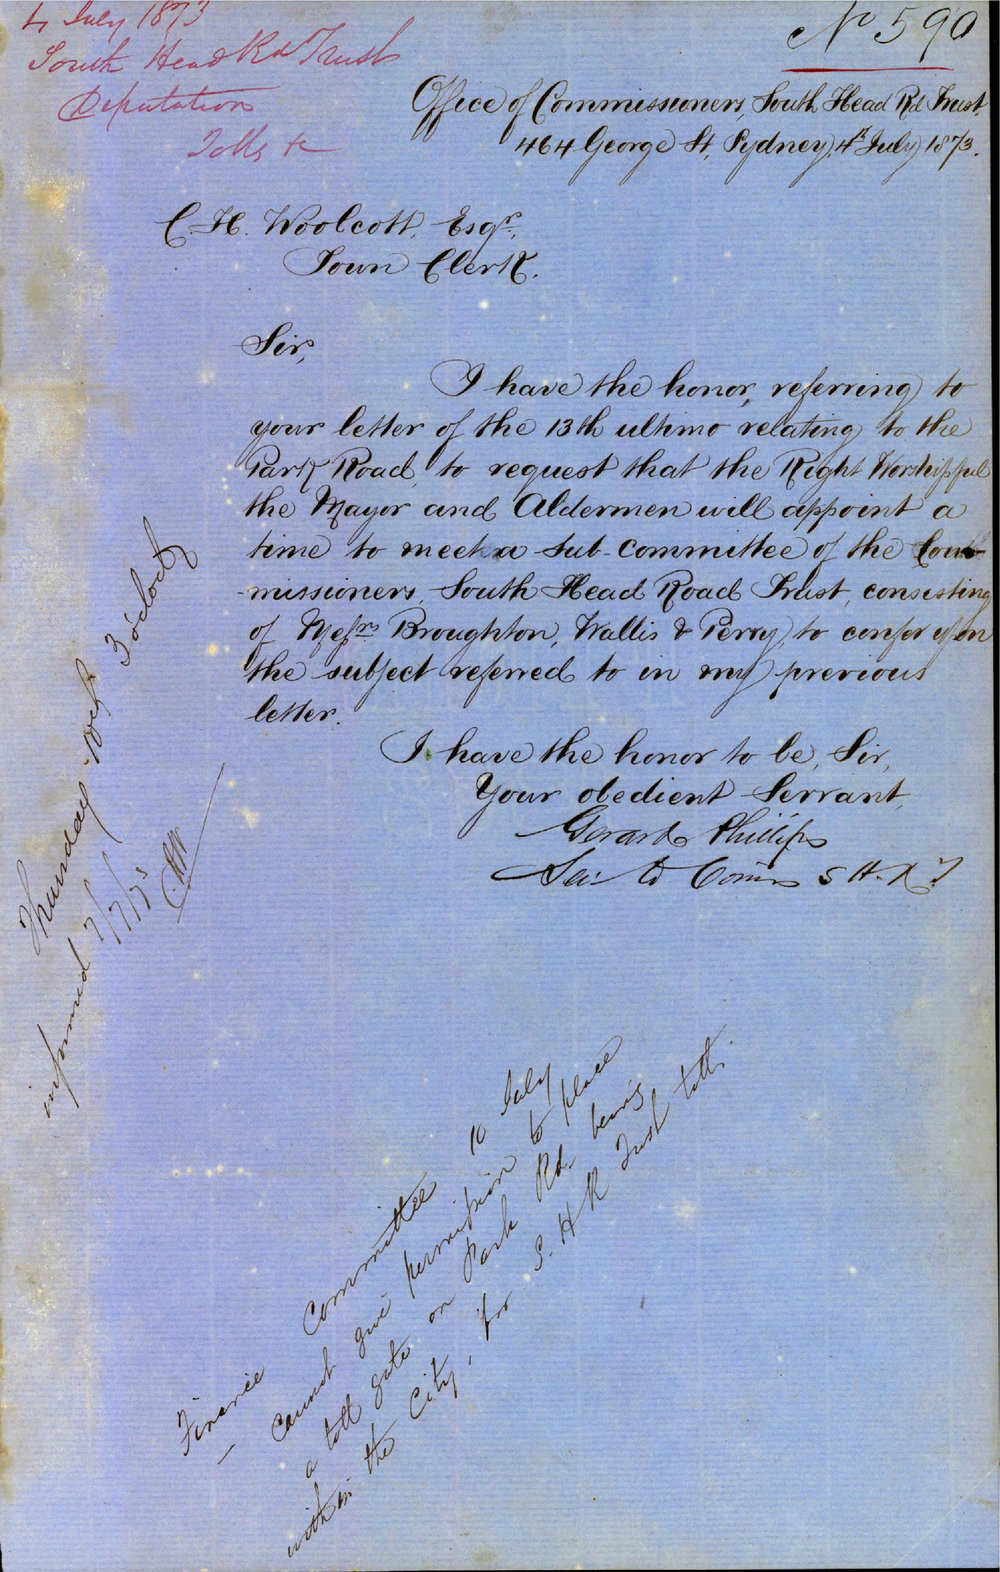 4 July 1873
South Head Rd Trust
Deputation
Tolls &c
No 590
Office of Commissioners, South Head Rd Trust,
464 George St, Sydney, 4th July 1873.
C. H. Woolcott, Esqr,
Town Clerk.
Sir,
I have the honor, referring to
your letter of the 13th ultimo relating to the
Park Road, to request that the Right Worshipful
the Mayor and Aldermen will appoint a
time to meet a Sub-Committee of the Com-
-missioners, South Head Road Trust, consisting
of Messrs Broughton, Wallis & Perry, to confer upon
the subject referred to in my previous
letter.
I have the honor to be, Sir,
Your obedient Servant,
Gerard Phillips
Sec. to Comrs S H. R T
Thursday 10th 3 o'clock
informed 7/7/73
CHW
Finance Committee 10 July
— Cannot give permission to place
a toll gate on Park Rd. being
within the City, for S. H R Trust tolls.